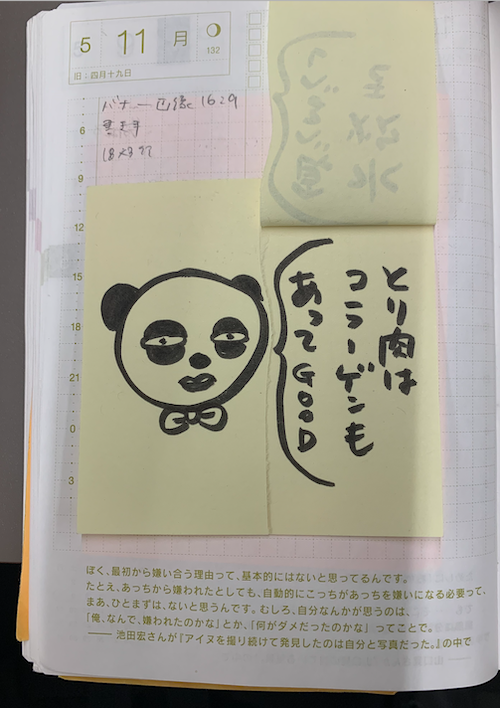 5 11 月
132
旧:四月十九日
6
9
12
15
18
21
0
3
とり肉は
コラーゲンも
あってGOOD
ぼく、最初から嫌い合う理由って、基本的にはないと思ってるんです。
たとえ、あっちから嫌われたとしても、自動的にこっちがあっちを嫌いになる必要って、
まあ、ひとまずは、ないと思うんです。むしろ、自分なんかが思うのは、
「俺、なんで、嫌われたのかな」とか、「何がダメだったのかな」ってことで。
——池田宏さんが『アイヌを撮り続けて発見したのは自分と写真だった。』の中で